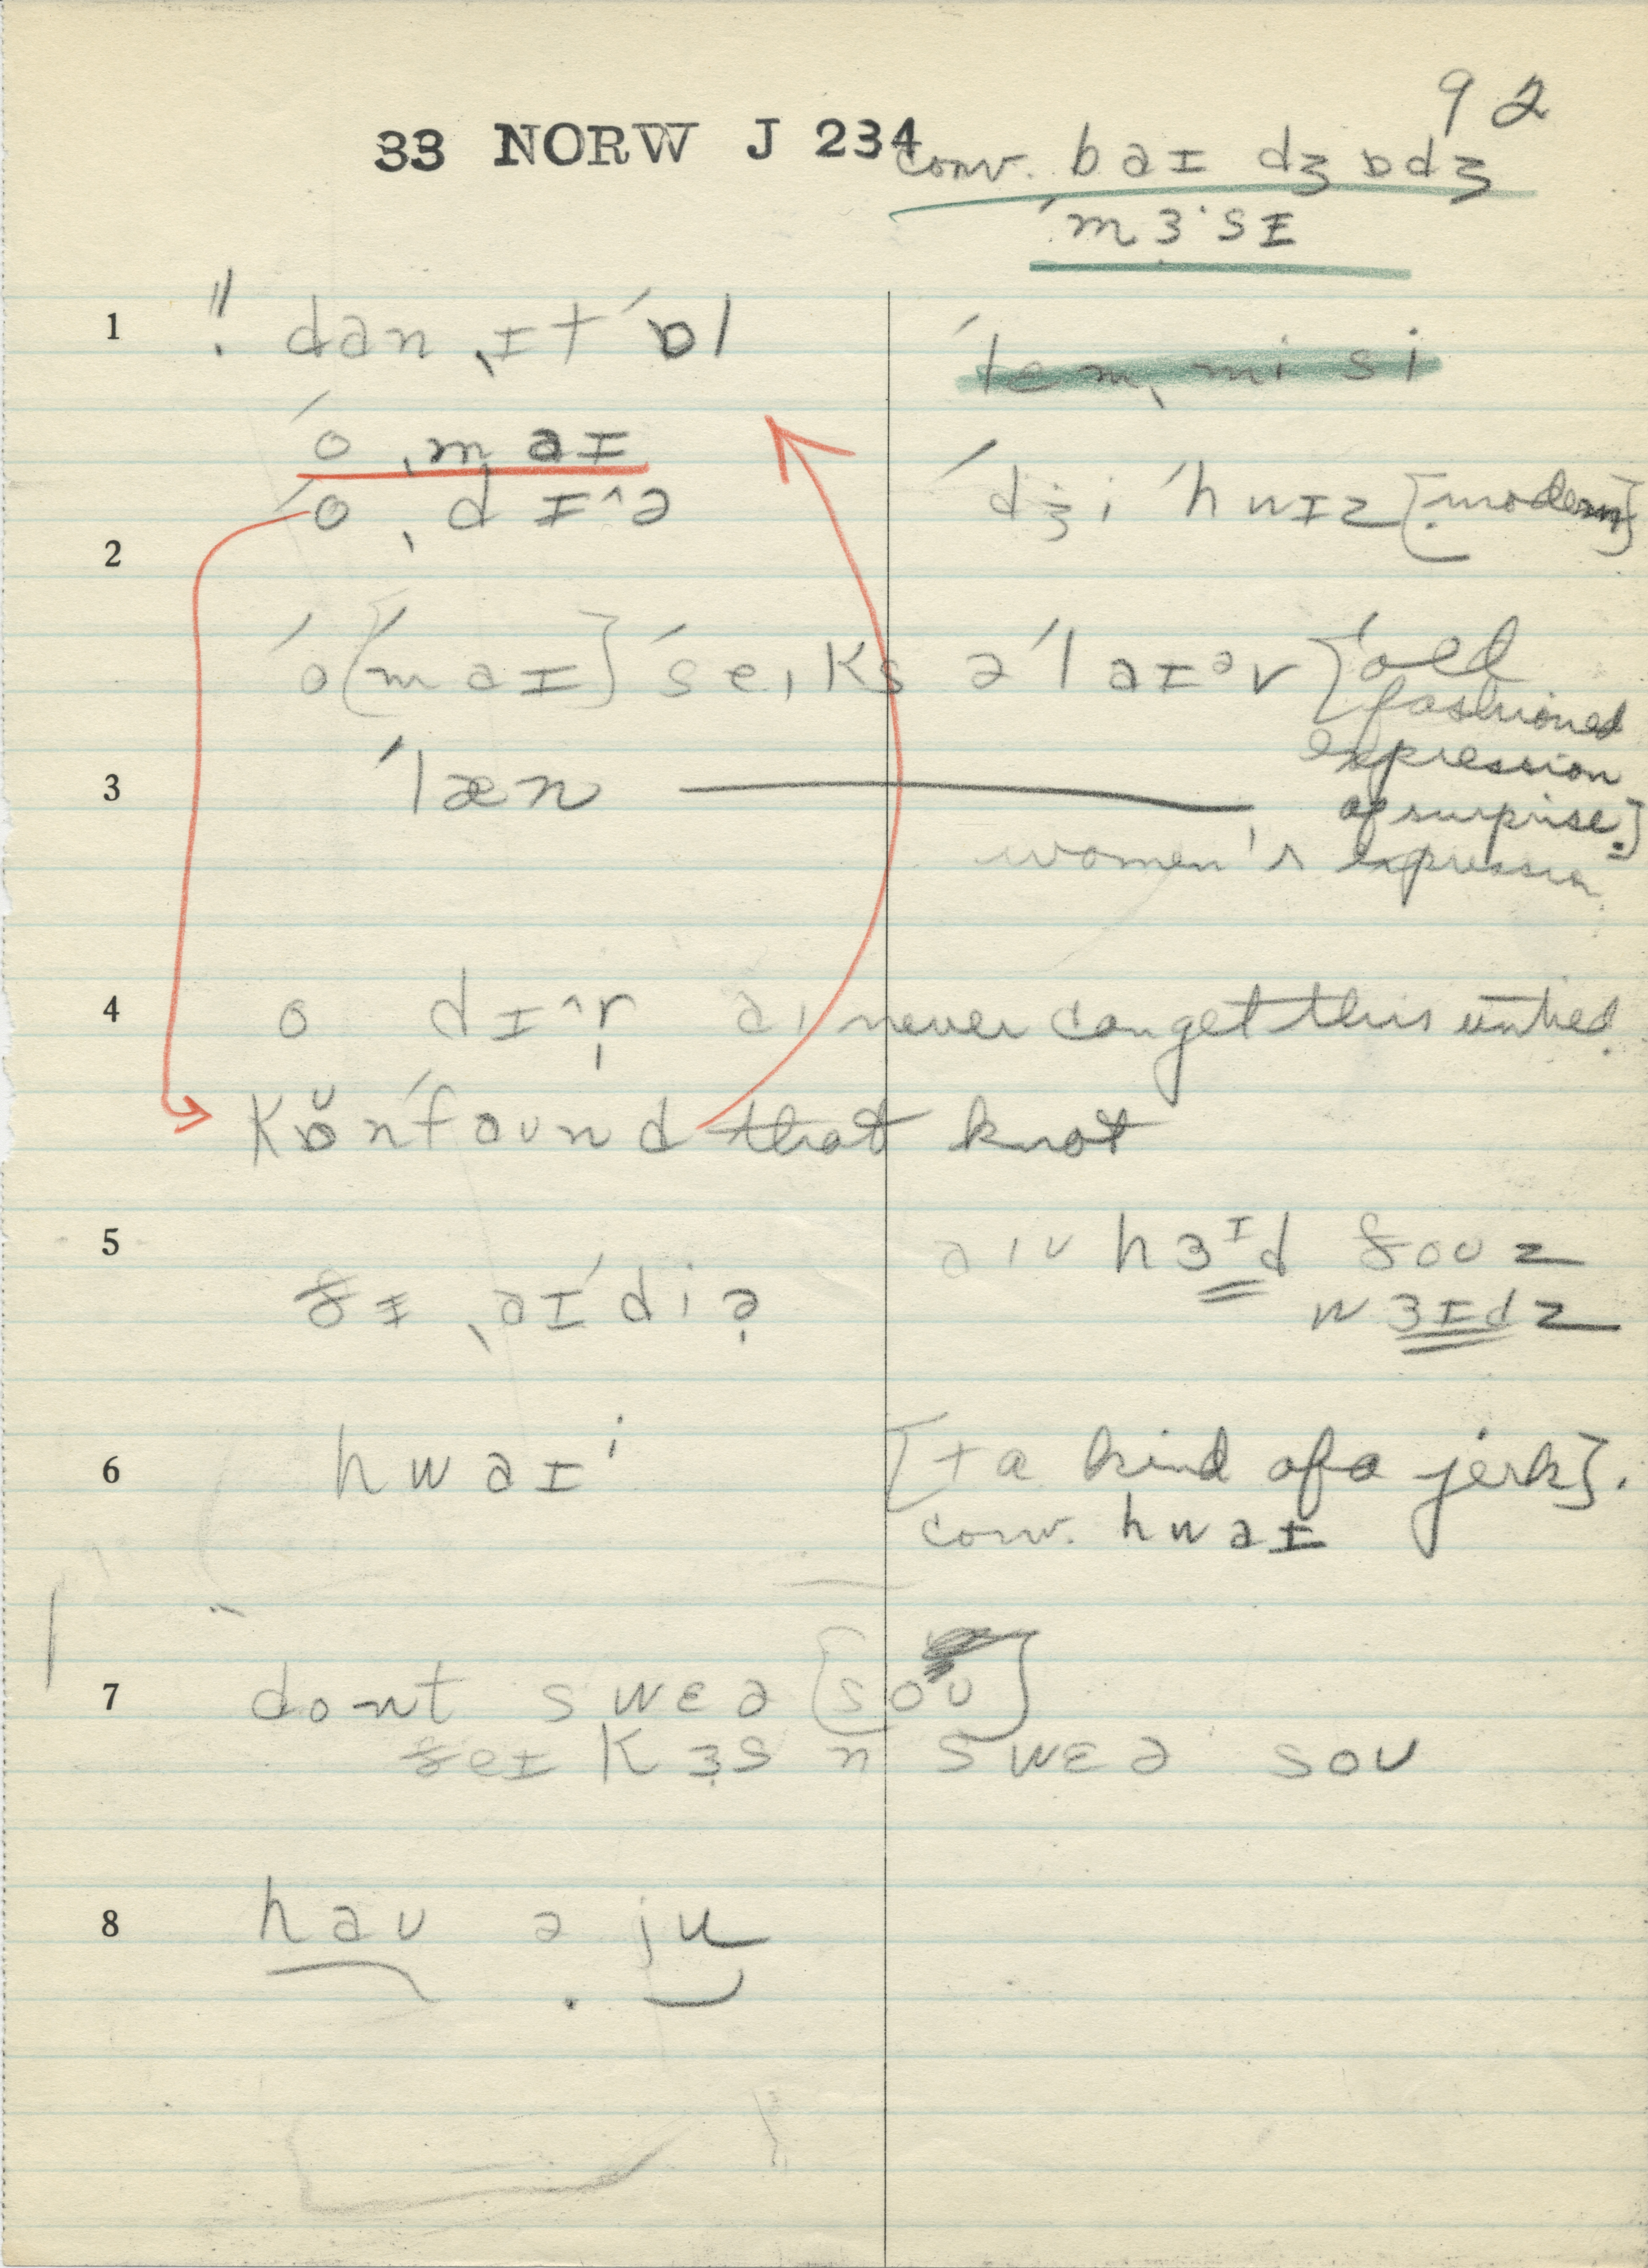 92
33 NORW J 234 conv. baɪ dʒɒdʒ
ˈmɜ·sɪ
1 ! dan ˌɪt ˈɒl
ˈlemˌmisi
ˈo ˌmaɪ
ˈdʒi ˈhwɪz [modern]
2 ˈo ˌdɪ^ə
ˈo [ˈmaɪ] ˈseɪks əˈlaɪᵊv [old
fashioned
expression
3 ˈlæn
of surprise.]
women's expression
4 o dɪ^r̩ aɪ never can get this untied.
kɒ̆nˈfaʊnd that knot
5 ðɪ ˌaɪˈdiə
aɪv hɜᴵd ðoʊz
wɜɪdz
6 hwaɪ ⁱ [+ a kind of a jerk].
conv. hwaɪ
7 dont swɛə [soʊ]
ðeɪ kɜs n swɛə soʊ
8 haʊ ə ju